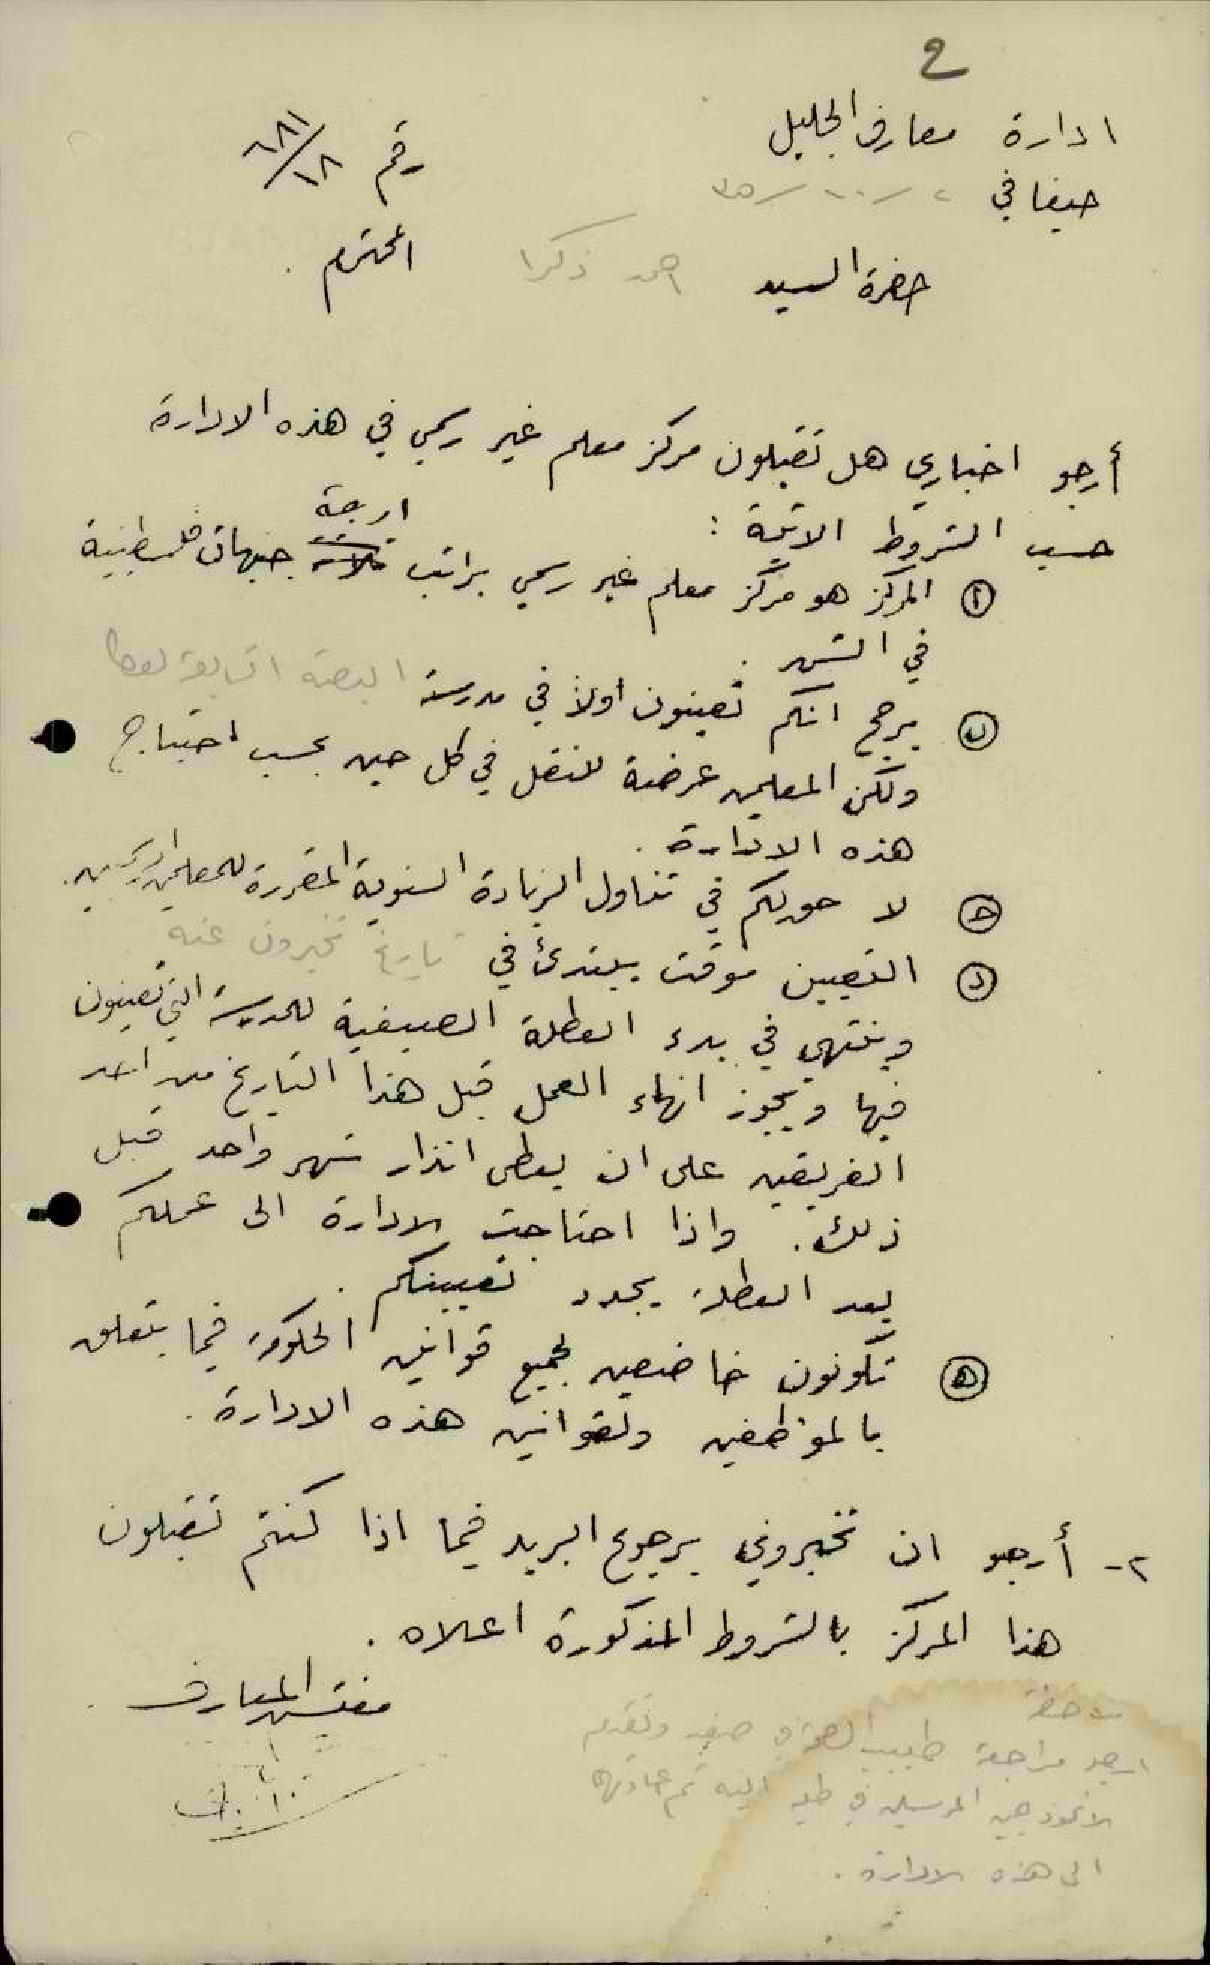 2
ادارة معارف الجليل
رقم ٦٨١/١٨
حيفا في ٢/١٠/٣٥
حضرة السيد احمد ذكرا المحترم .
أرجو اخباري هل تقبلون مركز معلم غير رسمي في هذه الادارة
حسب الشروط الاتية :
اربعة
أ المركز هو مركز معلم غير رسمي براتب ثلاثة جنيهات فلسطينية
في الشهر .
ب يرجح انكم تعينون اولا في مدرسة البصة التابعة لعكا
ولكن المعلمين عرضة للنقل في كل حين بحسب احتياج
هذه الادارة .
ج لا حق لكم في تناول الزيادة السنوية المقررة للمعلمين الرسميين .
د التعيين موقت يبتدئ في تاريخ تخبرون عنه
وينتهي في بدء العطلة الصيفية للمدرسة التي تعينون
فيها ويجوز انهاء العمل قبل هذا التاريخ من احد
الفريقين على ان يعطى انذار شهر واحد قبل
ذلك . واذا احتاجت الادارة الى عملكم
بعد العطلة يجدد تعيينكم .
ه تكونون خاضعين لجميع قوانين الحكومة فيما يتعلق
بالموظفين ولقوانين هذه الادارة .
٢- أرجو ان تخبروني برجوع البريد فيما اذا كنتم تقبلون
هذا المركز بالشروط المذكورة اعلاه .
مفتش المعارف
ملاحظة
ارجو مراجعة طبيب الصحة في صفد وتقديم
الانموذجين المرسلين في طيه اليه ثم اعادتها
الى هذه الادارة .